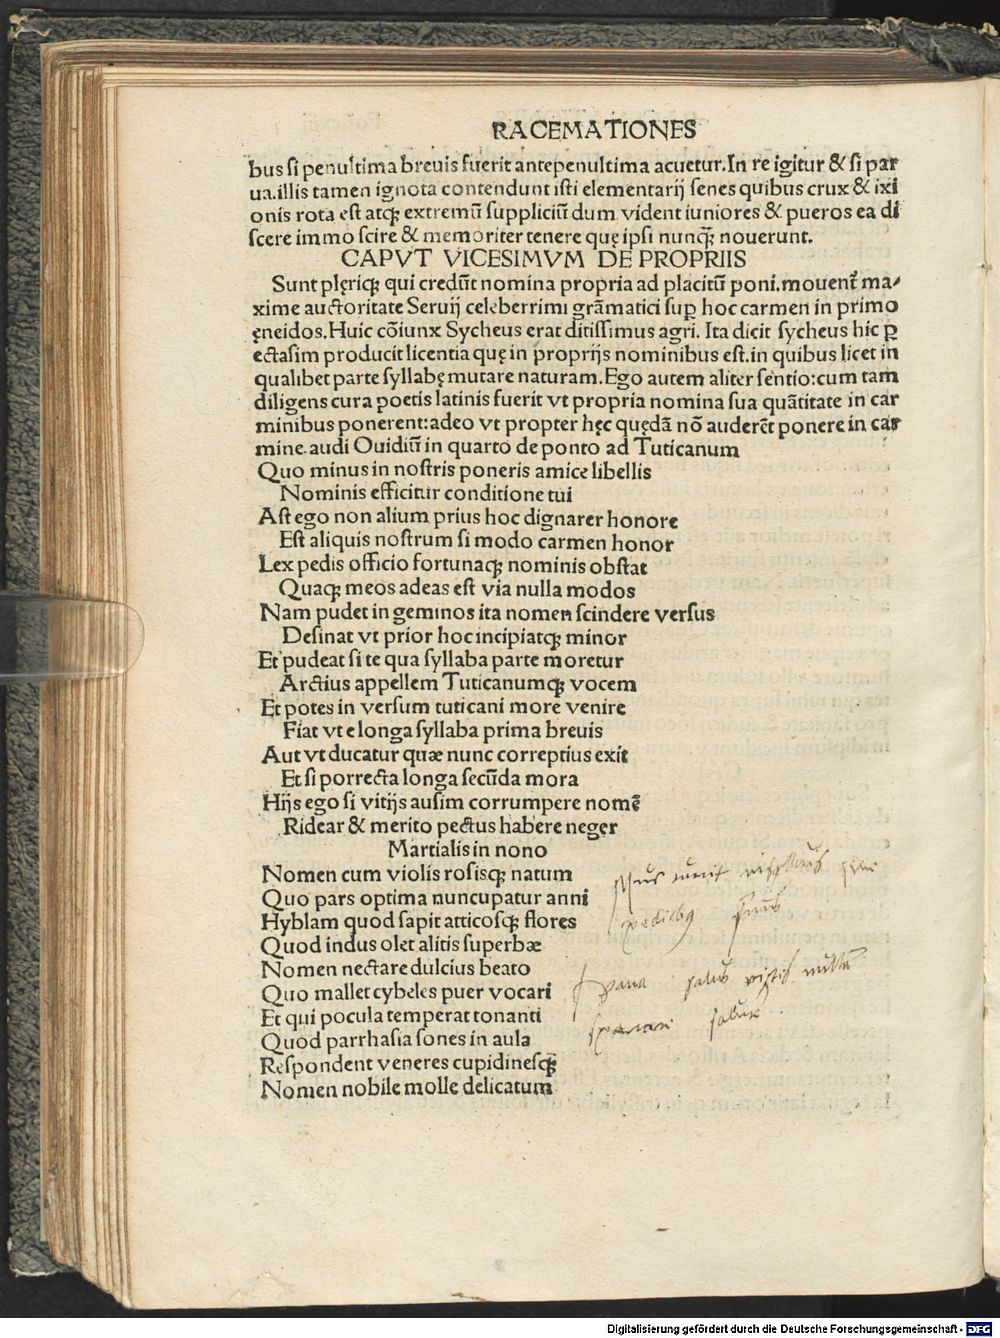 RACEMATIONES
bus si penultima breuis fuerit antepenultima acuetur. In re igitur & si par
ua. illis tamen ignota contendunt isti elementarij senes quibus crux & ixi
onis rota est atq; extremū suppliciū dum vident iuniores & pueros ea di
scere immo scire & memoriter tenere quę ipsi nunq̄; nouerunt.
CAPVT VICESIMVM DE PROPRIIS
Sunt plęriq; qui credūt nomina propria ad placitū poni. mouent᷑ ma⸗
xime auctoritate Seruij celeberrimi grāmatici suꝑ hoc carmen in primo
ęneidos. Huic cōiunx Sycheus erat ditissimus agri. Ita dicit sycheus hic ꝑ
ectasim producit licentia quę in proprijs nominibus est. in quibus licet in
qualibet parte syllabę mutare naturam. Ego autem aliter sentio: cum tam
diligens cura poetis latinis fuerit vt propria nomina sua quātitate in car
minibus ponerent: adeo vt propter hęc quędā nō auderēt ponere in car
mine. audi Ouidiū in quarto de ponto ad Tuticanum
Quo minus in nostris poneris amice libellis
Nominis efficitur conditione tui
Ast ego non alium prius hoc dignarer honore
Est aliquis nostrum si modo carmen honor
Lex pedis officio fortunaq; nominis obstat
Quaq; meos adeas est via nulla modos
Nam pudet in geminos ita nomen scindere versus
Desinat vt prior hoc incipiatq; minor
Et pudeat si te qua syllaba parte moretur
Arctius appellem Tuticanumq; vocem
Et potes in versum tuticani more venire
Fiat vt e longa syllaba prima breuis
Aut vt ducatur quæ nunc correptius exit
Et si porrecta longa secūda mora
Hijs ego si vitijs ausim corrumpere nomē
Ridear & merito pectus habere neger
Martialis in nono
Nomen cum violis rosisq; natum
Quo pars optima nuncupatur anni
Hyblam quod sapit atticosq; flores
Quod indus olet alitis superbæ
Nomen nectare dulcius beato
Quo mallet cybeles puer vocari
Et qui pocula temperat tonanti
Quod parrhasia sones in aula
Respondent veneres cupidinesq;
Nomen nobile molle delicatum
salus
Digitalisierung gefördert durch die Deutsche Forschungsgemeinschaft - DFG